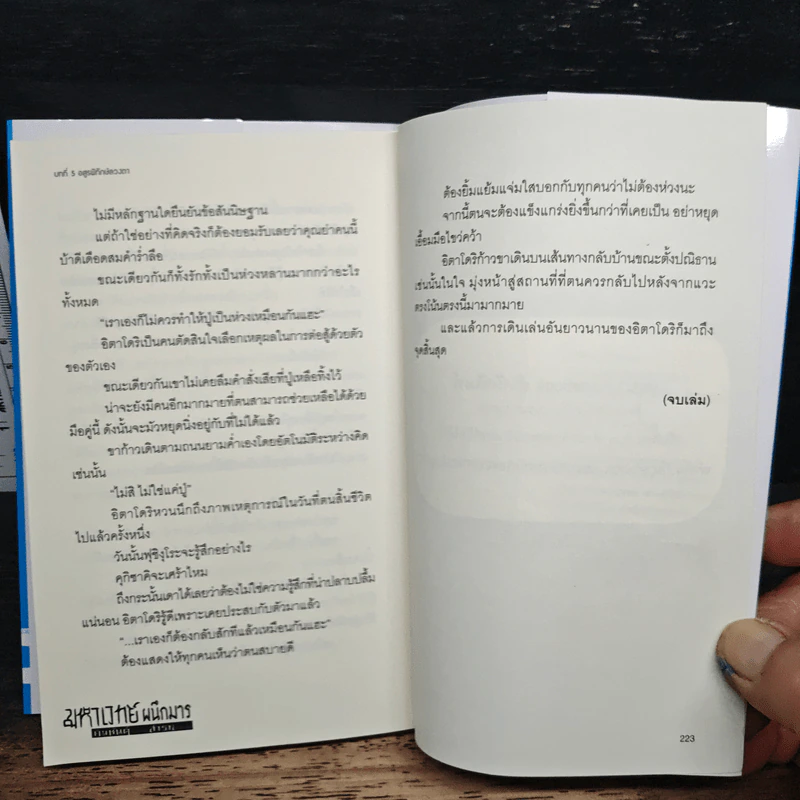 บทที่ 5 อสูรพิทักษ์ดวงตา
ไม่มีหลักฐานใดยืนยันข้อสันนิษฐาน
แต่ถ้าใช่อย่างที่คิดจริงก็ต้องยอมรับเลยว่าคุณย่าคนนี้
บ้าดีเดือดสมคำร่ำลือ
ขณะเดียวกันก็ทั้งรักทั้งเป็นห่วงหลานมากกว่าอะไร
ทั้งหมด
"เราเองก็ไม่ควรทำให้ปู่เป็นห่วงเหมือนกันแฮะ"
อิตาโดริเป็นคนตัดสินใจเลือกเหตุผลในการต่อสู้ด้วยตัว
ของตัวเอง
ขณะเดียวกันเขาไม่เคยลืมคำสั่งเสียที่ปู่เหลือทิ้งไว้
น่าจะยังมีคนอีกมากมายที่ตนสามารถช่วยเหลือได้ด้วย
มือคู่นี้ ดังนั้นจะมัวหยุดนิ่งอยู่กับที่ไม่ได้แล้ว
ขาก้าวเดินตามถนนยามค่ำเองโดยอัตโนมัติระหว่างคิด
เช่นนั้น
"ไม่สิ ไม่ใช่แค่ปู่"
อิตาโดริหวนนึกถึงภาพเหตุการณ์ในวันที่ตนสิ้นชีวิต
ไปแล้วครั้งหนึ่ง
วันนั้นฟุชิงุโระจะรู้สึกอย่างไร
คุกิซาคิจะเศร้าไหม
ถึงกระนั้นเดาได้เลยว่าต้องไม่ใช่ความรู้สึกที่น่าปลาบปลื้ม
แน่นอน อิตาโดริรู้ดีเพราะเคยประสบกับตัวมาแล้ว
"...เราเองก็ต้องกลับสักทีแล้วเหมือนกันแฮะ"
ต้องแสดงให้ทุกคนเห็นว่าตนสบายดี
มหาเวทย์ผนึกมาร
ต้องยิ้มแย้มแจ่มใสบอกกับทุกคนว่าไม่ต้องห่วงนะ
จากนี้ตนจะต้องแข็งแกร่งยิ่งขึ้นกว่าที่เคยเป็น อย่าหยุด
เอื้อมมือไขว่คว้า
อิตาโดริก้าวขาเดินบนเส้นทางกลับบ้านขณะตั้งปณิธาน
เช่นนั้นในใจ มุ่งหน้าสู่สถานที่ที่ตนควรกลับไปหลังจากแวะ
ตรงโน้นตรงนี้มามากมาย
และแล้วการเดินเล่นอันยาวนานของอิตาโดริก็มาถึง
จุดสิ้นสุด
(จบเล่ม)
223